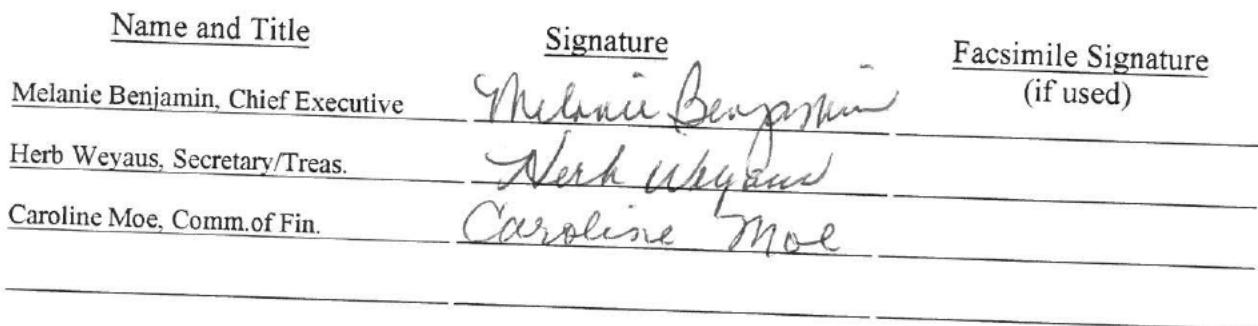 Name and Title Signature Facsimile Signature
(if used)
Melanie Benjamin, Chief Executive Melanie Benjamin
Herb Weyaus, Secretary/Treas. Herb Weyaus
Caroline Moe, Comm.of Fin. Caroline Moe